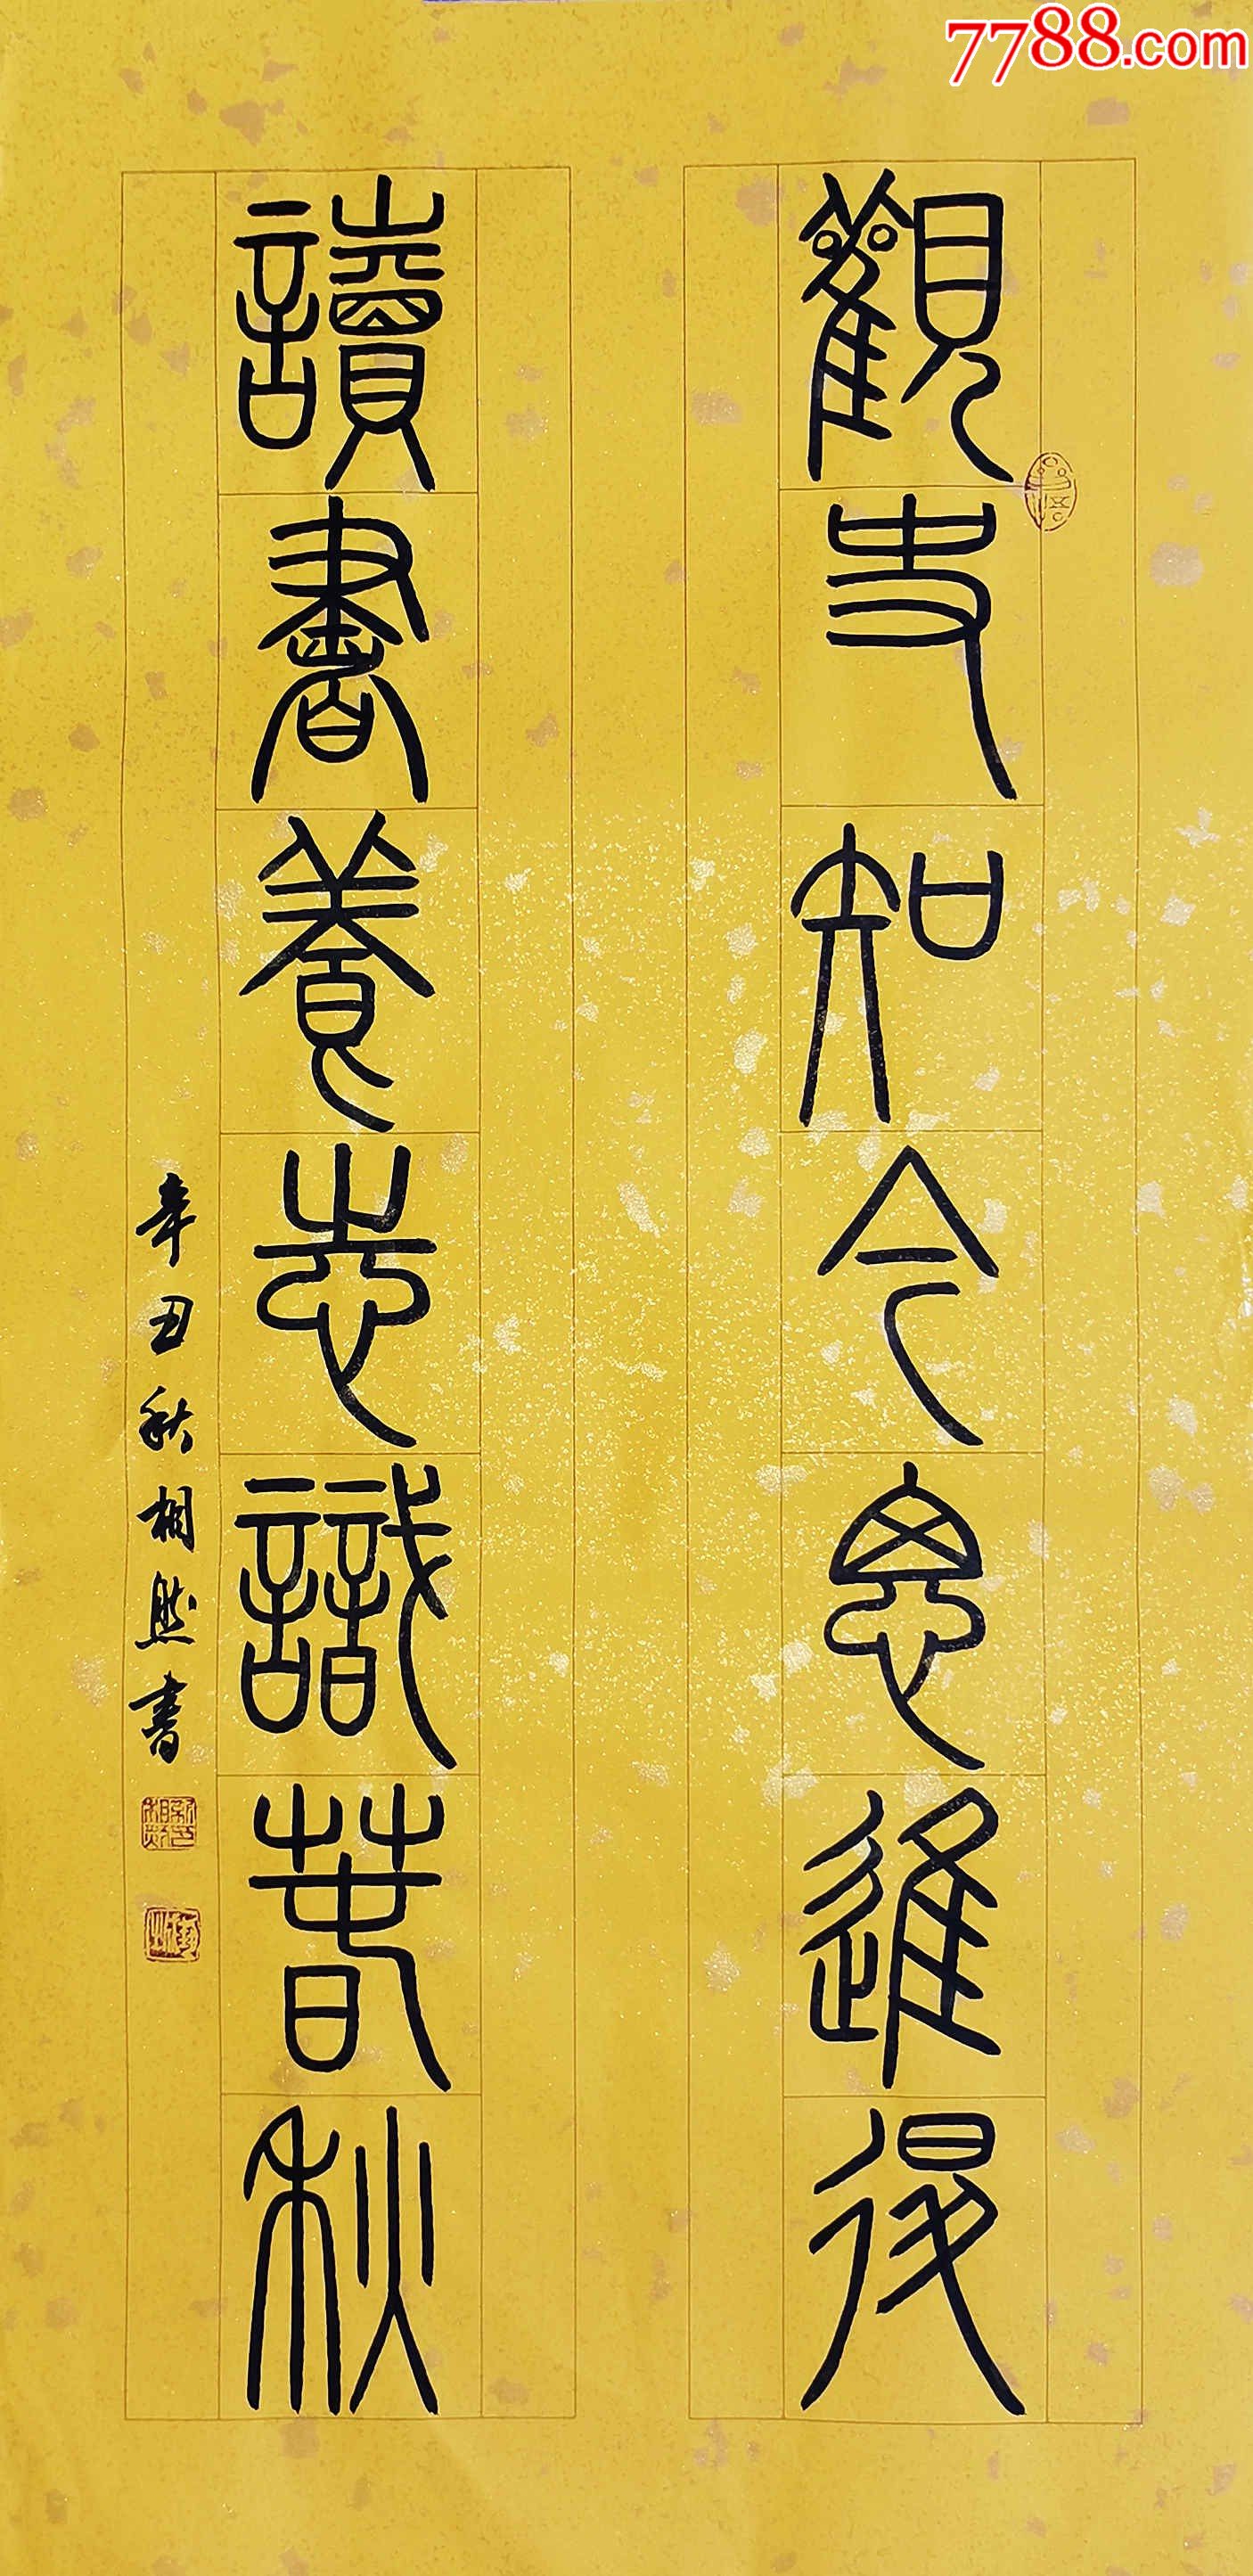 7788.com
觀史知今思進退
讀書養志識春秋
辛丑秋相然書